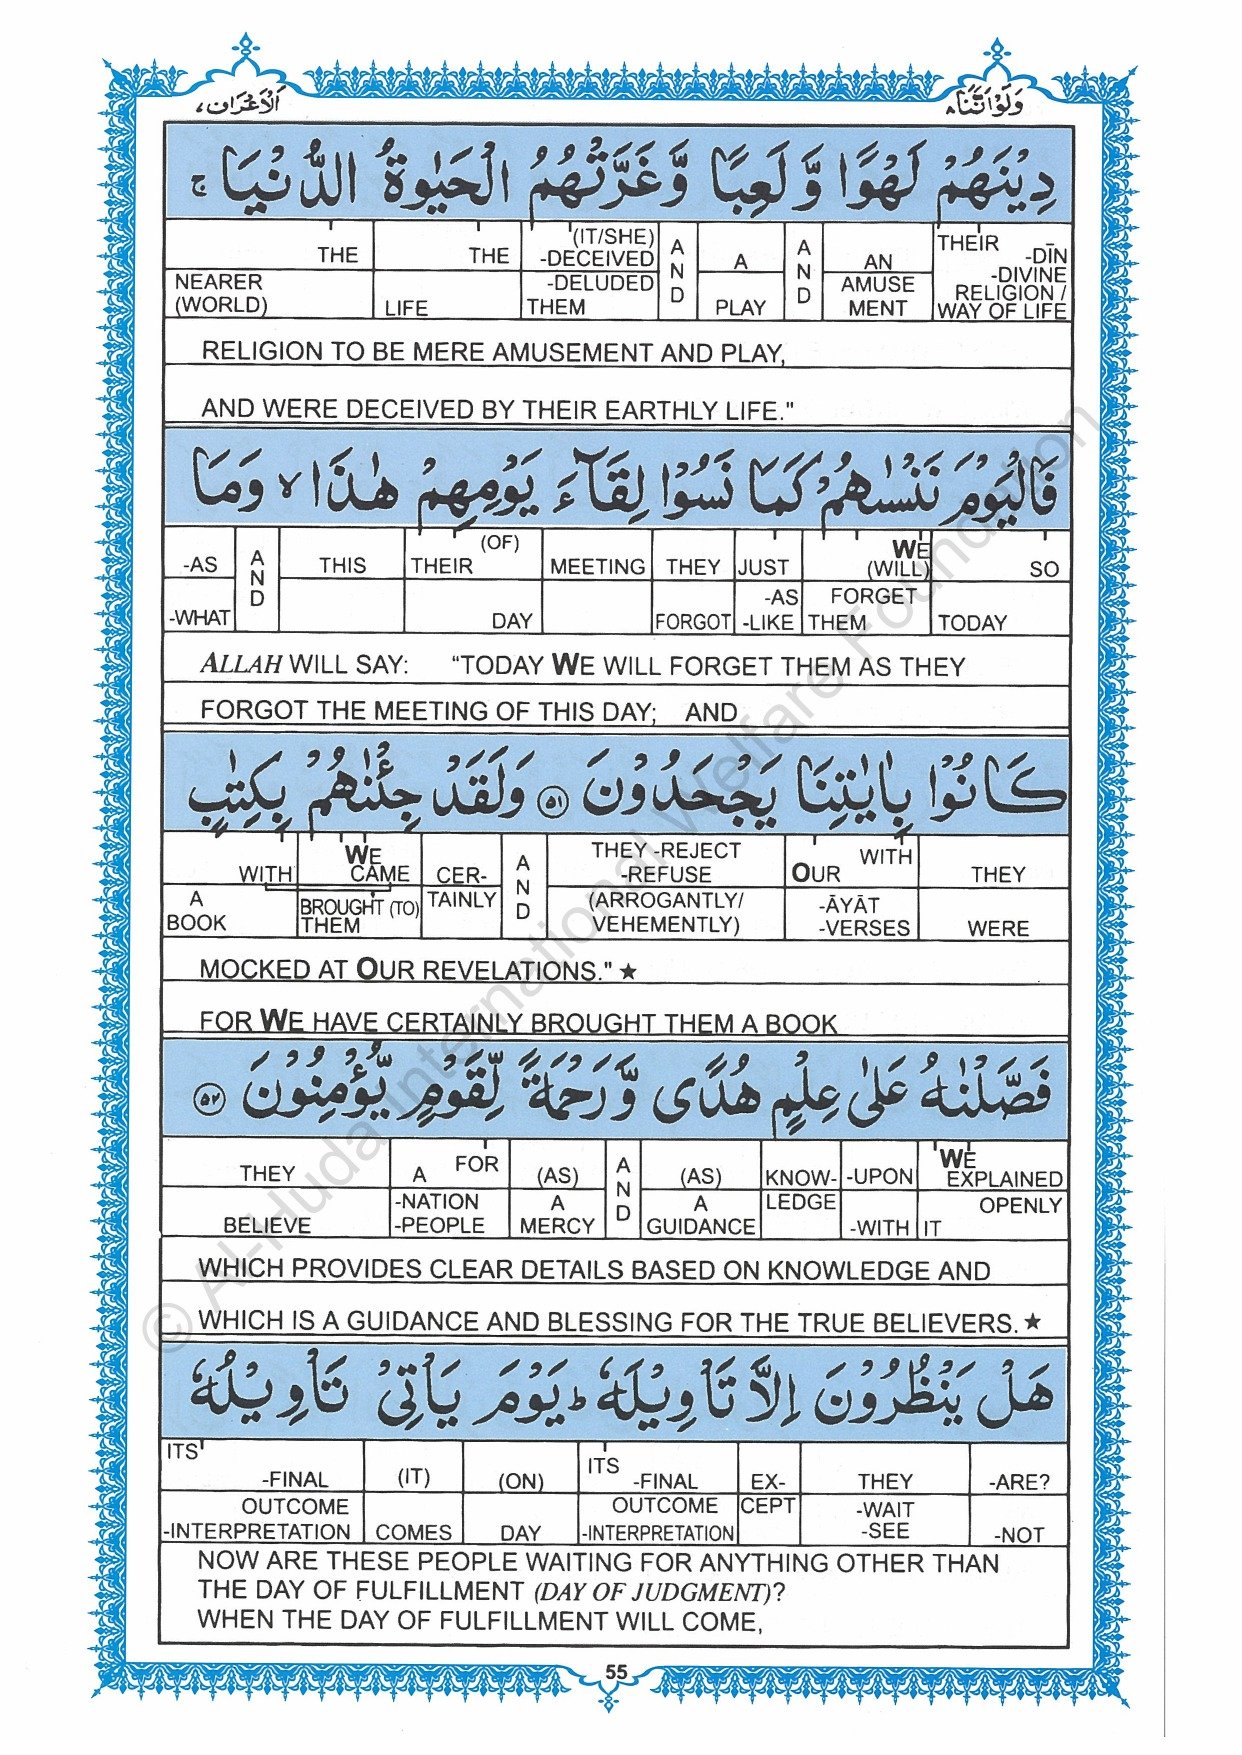 وَلَوْاَنَّنَا ۸
اَلْاَعْرَاف ۷
دِيْنَهُمْ لَهْوًا وَّلَعِبًا وَّغَرَّتْهُمُ الْحَيٰوةُ الدُّنْيَا ۚ
THEIR -DĪN -DIVINE RELIGION / WAY OF LIFE
AN AMUSEMENT
AND
A PLAY
AND
(IT/SHE) -DECEIVED -DELUDED THEM
THE LIFE
THE NEARER (WORLD)
RELIGION TO BE MERE AMUSEMENT AND PLAY,
AND WERE DECEIVED BY THEIR EARTHLY LIFE."
فَالْيَوْمَ نَنْسٰىهُمْ كَمَا نَسُوْا لِقَآءَ يَوْمِهِمْ هٰذَا ۙ وَمَا
SO TODAY
WE (WILL) FORGET THEM
JUST -AS -LIKE
THEY FORGOT
MEETING
(OF) THEIR DAY
THIS
AND
-AS -WHAT
ALLAH WILL SAY: "TODAY WE WILL FORGET THEM AS THEY
FORGOT THE MEETING OF THIS DAY; AND
كَانُوْا بِاٰيٰتِنَا يَجْحَدُوْنَ ۵۱ وَلَقَدْ جِئْنٰهُمْ بِكِتٰبٍ
THEY WERE
WITH OUR -ĀYĀT -VERSES
THEY -REJECT -REFUSE (ARROGANTLY/ VEHEMENTLY)
AND
CER- TAINLY
WE CAME BROUGHT (TO) THEM
WITH A BOOK
MOCKED AT OUR REVELATIONS." ★
FOR WE HAVE CERTAINLY BROUGHT THEM A BOOK
فَصَّلْنٰهُ عَلٰى عِلْمٍ هُدًى وَّرَحْمَةً لِّقَوْمٍ يُّؤْمِنُوْنَ ۵۲
WE EXPLAINED OPENLY IT
-UPON -WITH
KNOW- LEDGE
(AS) A GUIDANCE
AND
(AS) A MERCY
FOR A -NATION -PEOPLE
THEY BELIEVE
WHICH PROVIDES CLEAR DETAILS BASED ON KNOWLEDGE AND
WHICH IS A GUIDANCE AND BLESSING FOR THE TRUE BELIEVERS. ★
هَلْ يَنْظُرُوْنَ اِلَّا تَاْوِيْلَهٗ ؕ يَوْمَ يَاْتِيْ تَاْوِيْلُهٗ
-ARE? -NOT
THEY -WAIT -SEE
EX- CEPT
ITS -FINAL OUTCOME -INTERPRETATION
(ON) DAY
(IT) COMES
ITS -FINAL OUTCOME -INTERPRETATION
NOW ARE THESE PEOPLE WAITING FOR ANYTHING OTHER THAN
THE DAY OF FULFILLMENT (DAY OF JUDGMENT)?
WHEN THE DAY OF FULFILLMENT WILL COME,
55
© Al-Huda International Welfare Foundation